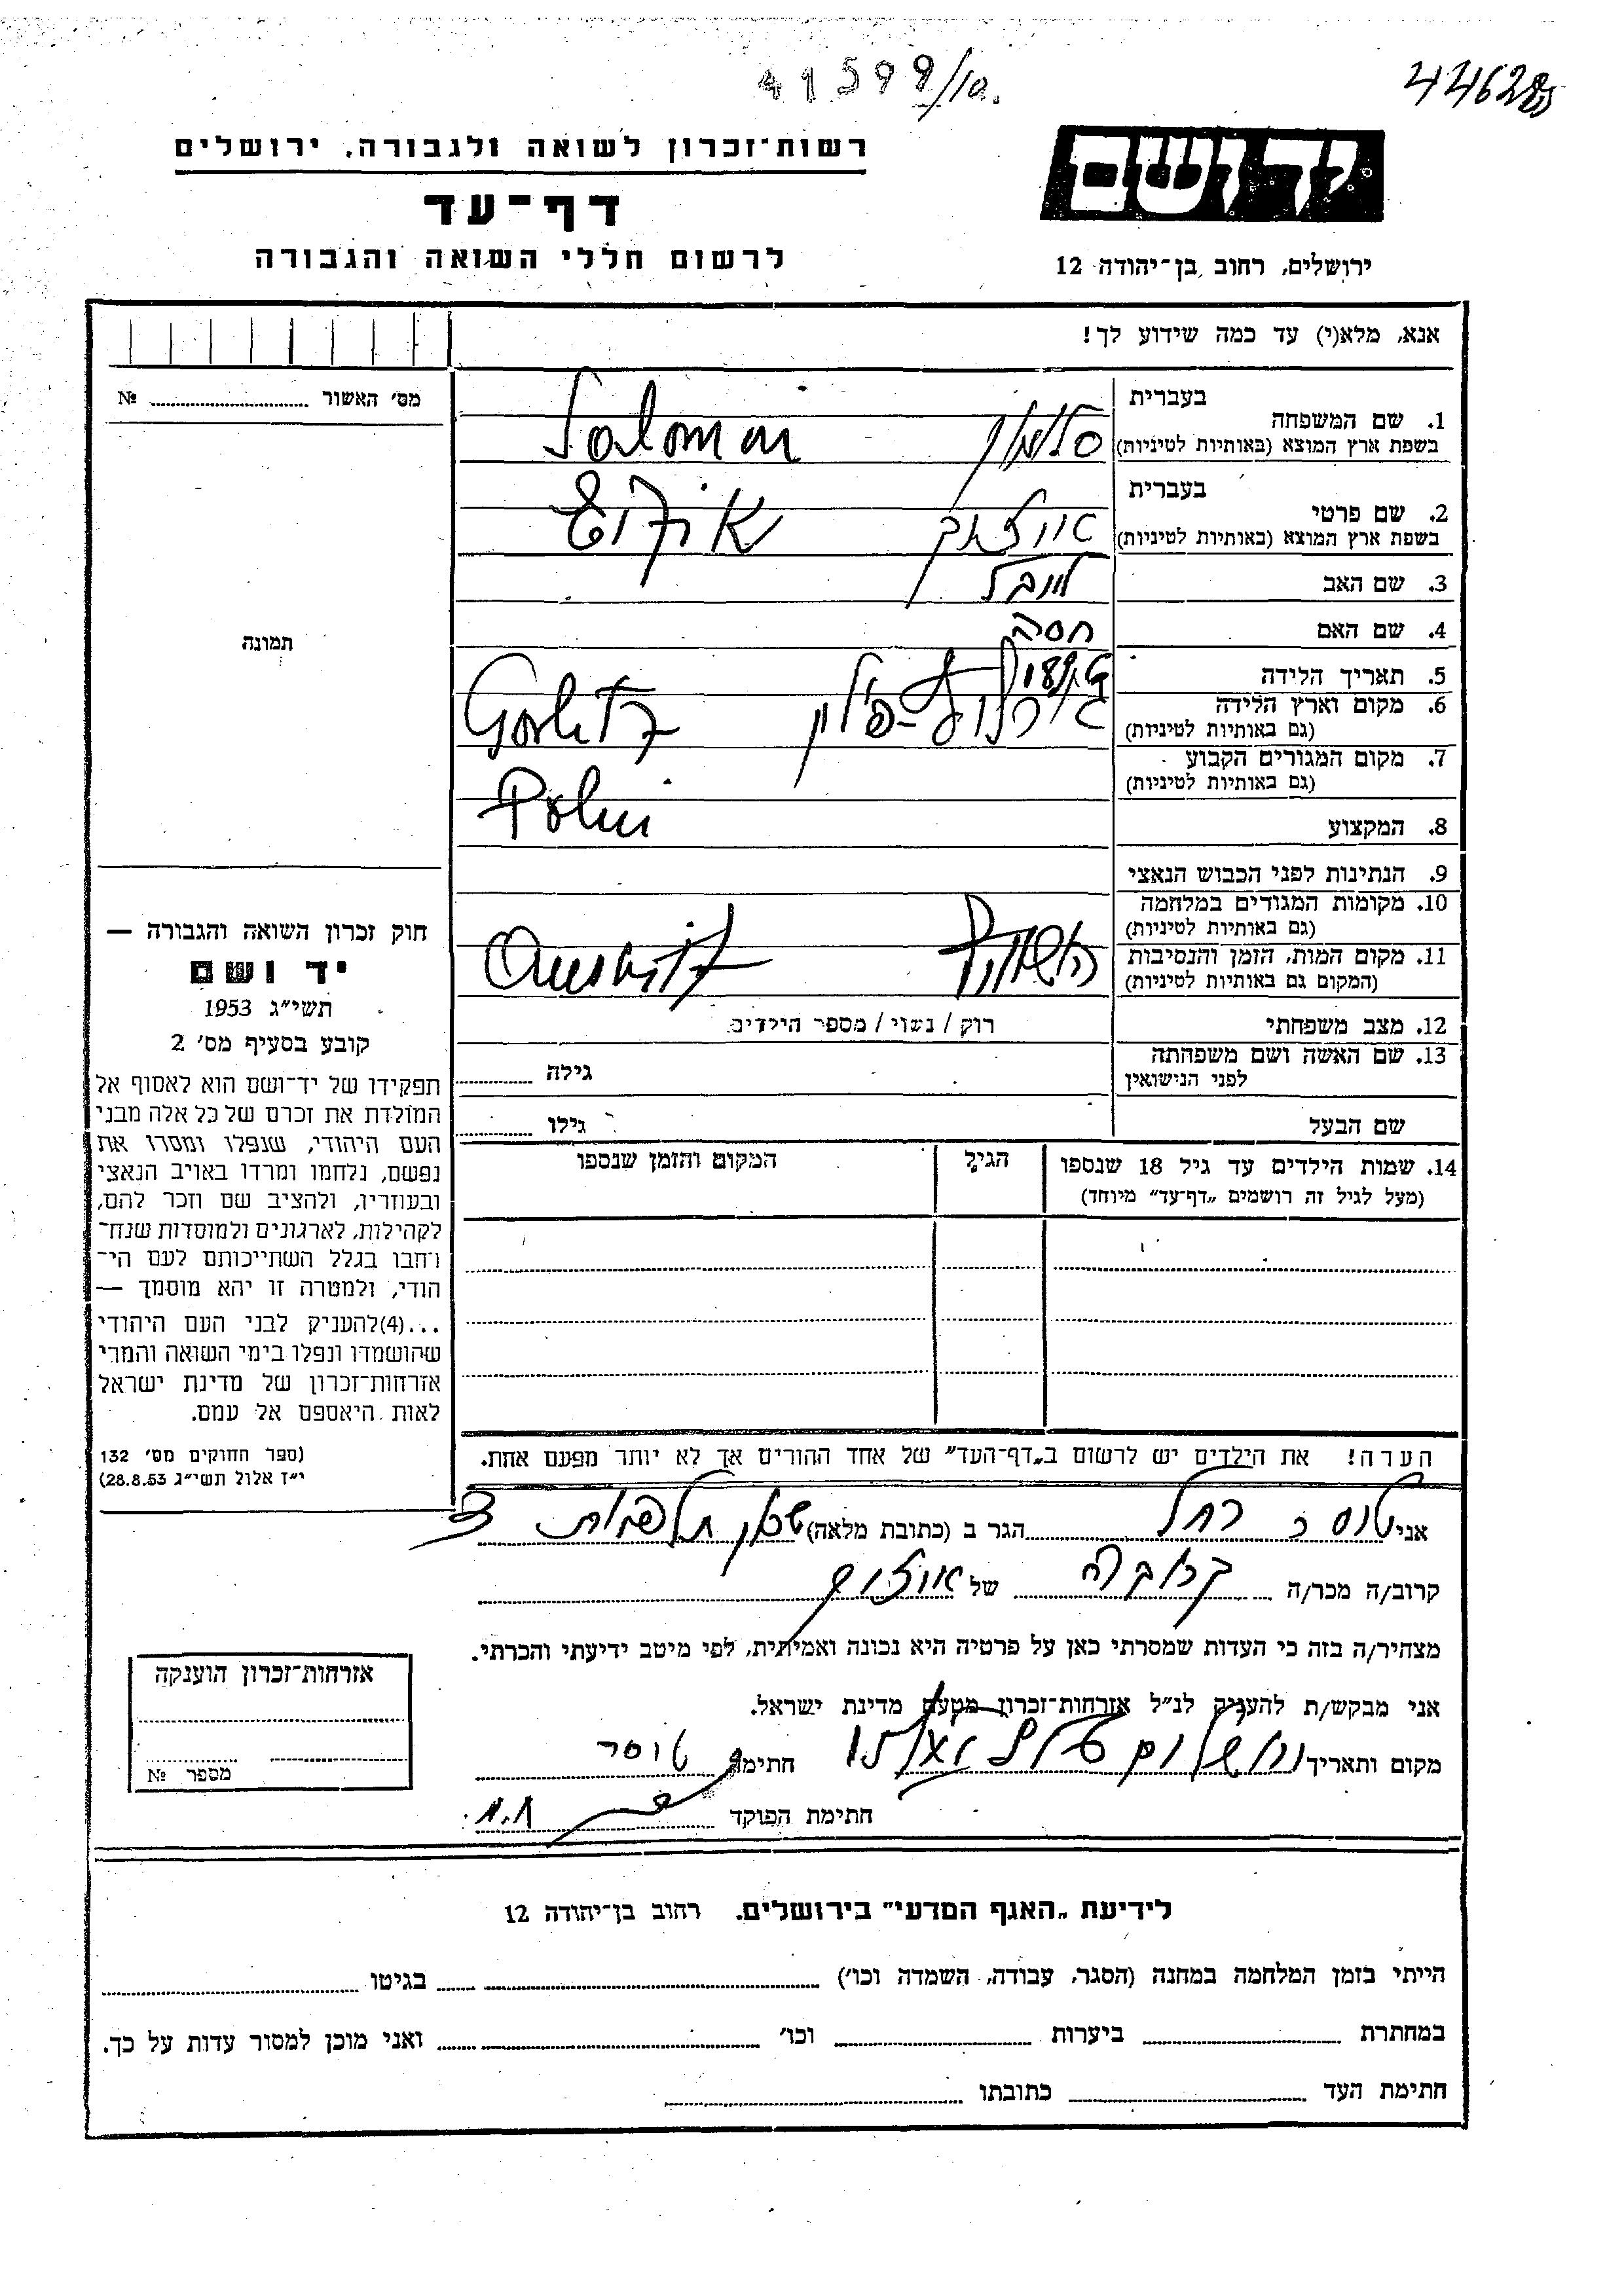 41599/10.
רשות־זכרון לשואה ולגבורה, ירושלים
דף־עד
לרשום חללי השואה והגבורה
ידושם
ירושלים, רחוב בן־יהודה 12
אנא, מלא(י) עד כמה שידוע לך!
מס׳ האשור № 
תמונה
1. שם המשפחה
בעברית
בשפת ארץ המוצא (באותיות לטיניות)
סלמון Salomon
2. שם פרטי
בעברית
בשפת ארץ המוצא (באותיות לטיניות)
3. שם האב
4. שם האם
5. תאריך הלידה
6. מקום וארץ הלידה
(גם באותיות לטיניות)
Gorlitz
7. מקום המגורים הקבוע
(גם באותיות לטיניות)
Polin
8. המקצוע
9. הנתינות לפני הכבוש הנאצי
10. מקומות המגורים במלחמה
(גם באותיות לטיניות)
11. מקום המות, הזמן והנסיבות
(המקום גם באותיות לטיניות)
12. מצב משפחתי
רוק / נשוי / מספר הילדים
13. שם האשה ושם משפחתה
לפני הנישואין
גילה
שם הבעל
גילו
14. שמות הילדים עד גיל 18 שנספו
(מעל לגיל זה רושמים „דף־עד" מיוחד)
הגיל
המקום והזמן שנספו
חוק זכרון השואה והגבורה —
יד ושם
תשי״ג 1953
קובע בסעיף מס׳ 2
תפקידו של יד־ושם הוא לאסוף אל
המולדת את זכרם של כל אלה מבני
העם היהודי, שנפלו ומסרו את
נפשם, נלחמו ומרדו באויב הנאצי
ובעוזריו, ולהציב שם וזכר להם,
לקהילות, לארגונים ולמוסדות שנח־
רחבו בגלל השתייכותם לעם הי־
הודי, ולמטרה זו יהא מוסמך —
...(4)להעניק לבני העם היהודי
שהושמדו ונפלו בימי השואה והמרי
אזרחות־זכרון של מדינת ישראל
לאות היאספם אל עמם.
(ספר החוקים מס׳ 132
י״ז אלול תשי״ג 28.8.53)
הערה! את הילדים יש לרשום ב„דף־העד" של אחד ההורים אך לא יותר מפעם אחת.
אני רחל הגר ב (כתובת מלאה)
קרוב/ה מכר/ה קרובה של
מצהיר/ה בזה כי העדות שמסרתי כאן על פרטיה היא נכונה ואמיתית, לפי מיטב ידיעתי והכרתי.
אני מבקש/ת להעניק לנ״ל אזרחות־זכרון מטעם מדינת ישראל.
מקום ותאריך ירושלים חתימה
חתימת הפוקד
אזרחות־זכרון הוענקה
מספר №
לידיעת „האגף המדעי" בירושלים. רחוב בן־יהודה 12
הייתי בזמן המלחמה במחנה (הסגר, עבודה, השמדה וכו׳) בגיטו
במחתרת ביערות וכו׳ ואני מוכן למסור עדות על כך.
חתימת העד כתובתו